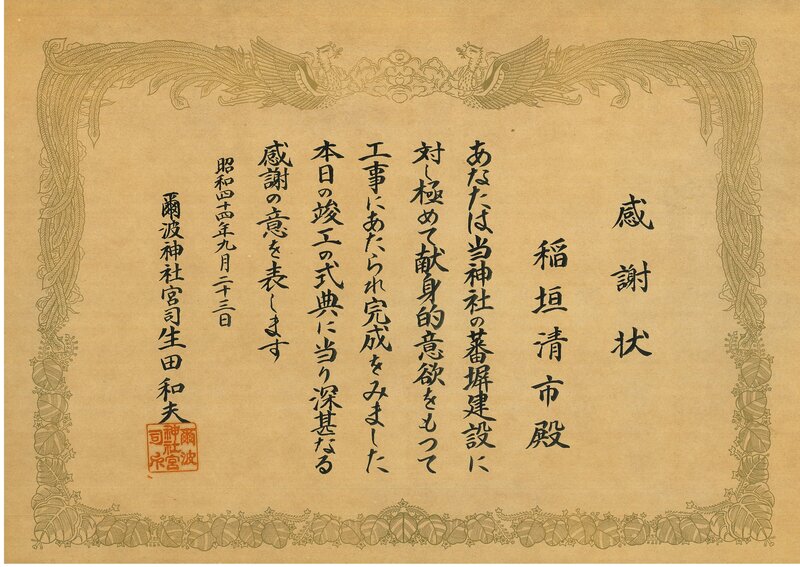 感謝状
稲垣清市殿
あなたは当神社の蕃塀建設に
対し極めて献身的意欲をもつて
工事にあたられ完成をみました
本日の竣工の式典に当り深甚なる
感謝の意を表します
昭和四十四年九月二十三日
爾波神社宮司生田和夫
爾波
神社宮
司印